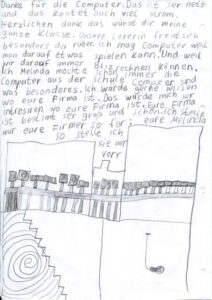 Danke für die Computer. Das ist ser nett
und das kostet auch viel strom.
Herzlichen dank das wünst dir meine
ganze Klasse. Unsere Lererin freid sich
besonders da rüber. ich mag Computer weil
man darauf etwas spielen kann. Und weil
wir darauf immer Blitzrechnen können.
Ich Melinda möchte schon immer die
Computer aus der schule Computer sind
was besonderes. Ich würde gerne wissen
wo eure Firma ist. Das würde mich ser
intresiren wo eure Firma ist. Eure Firma
ist bestimt ser groß und schön. Ich stelle
mir eure Firmer so for: eure Melinda
so stelle ich
sie mir
vorr